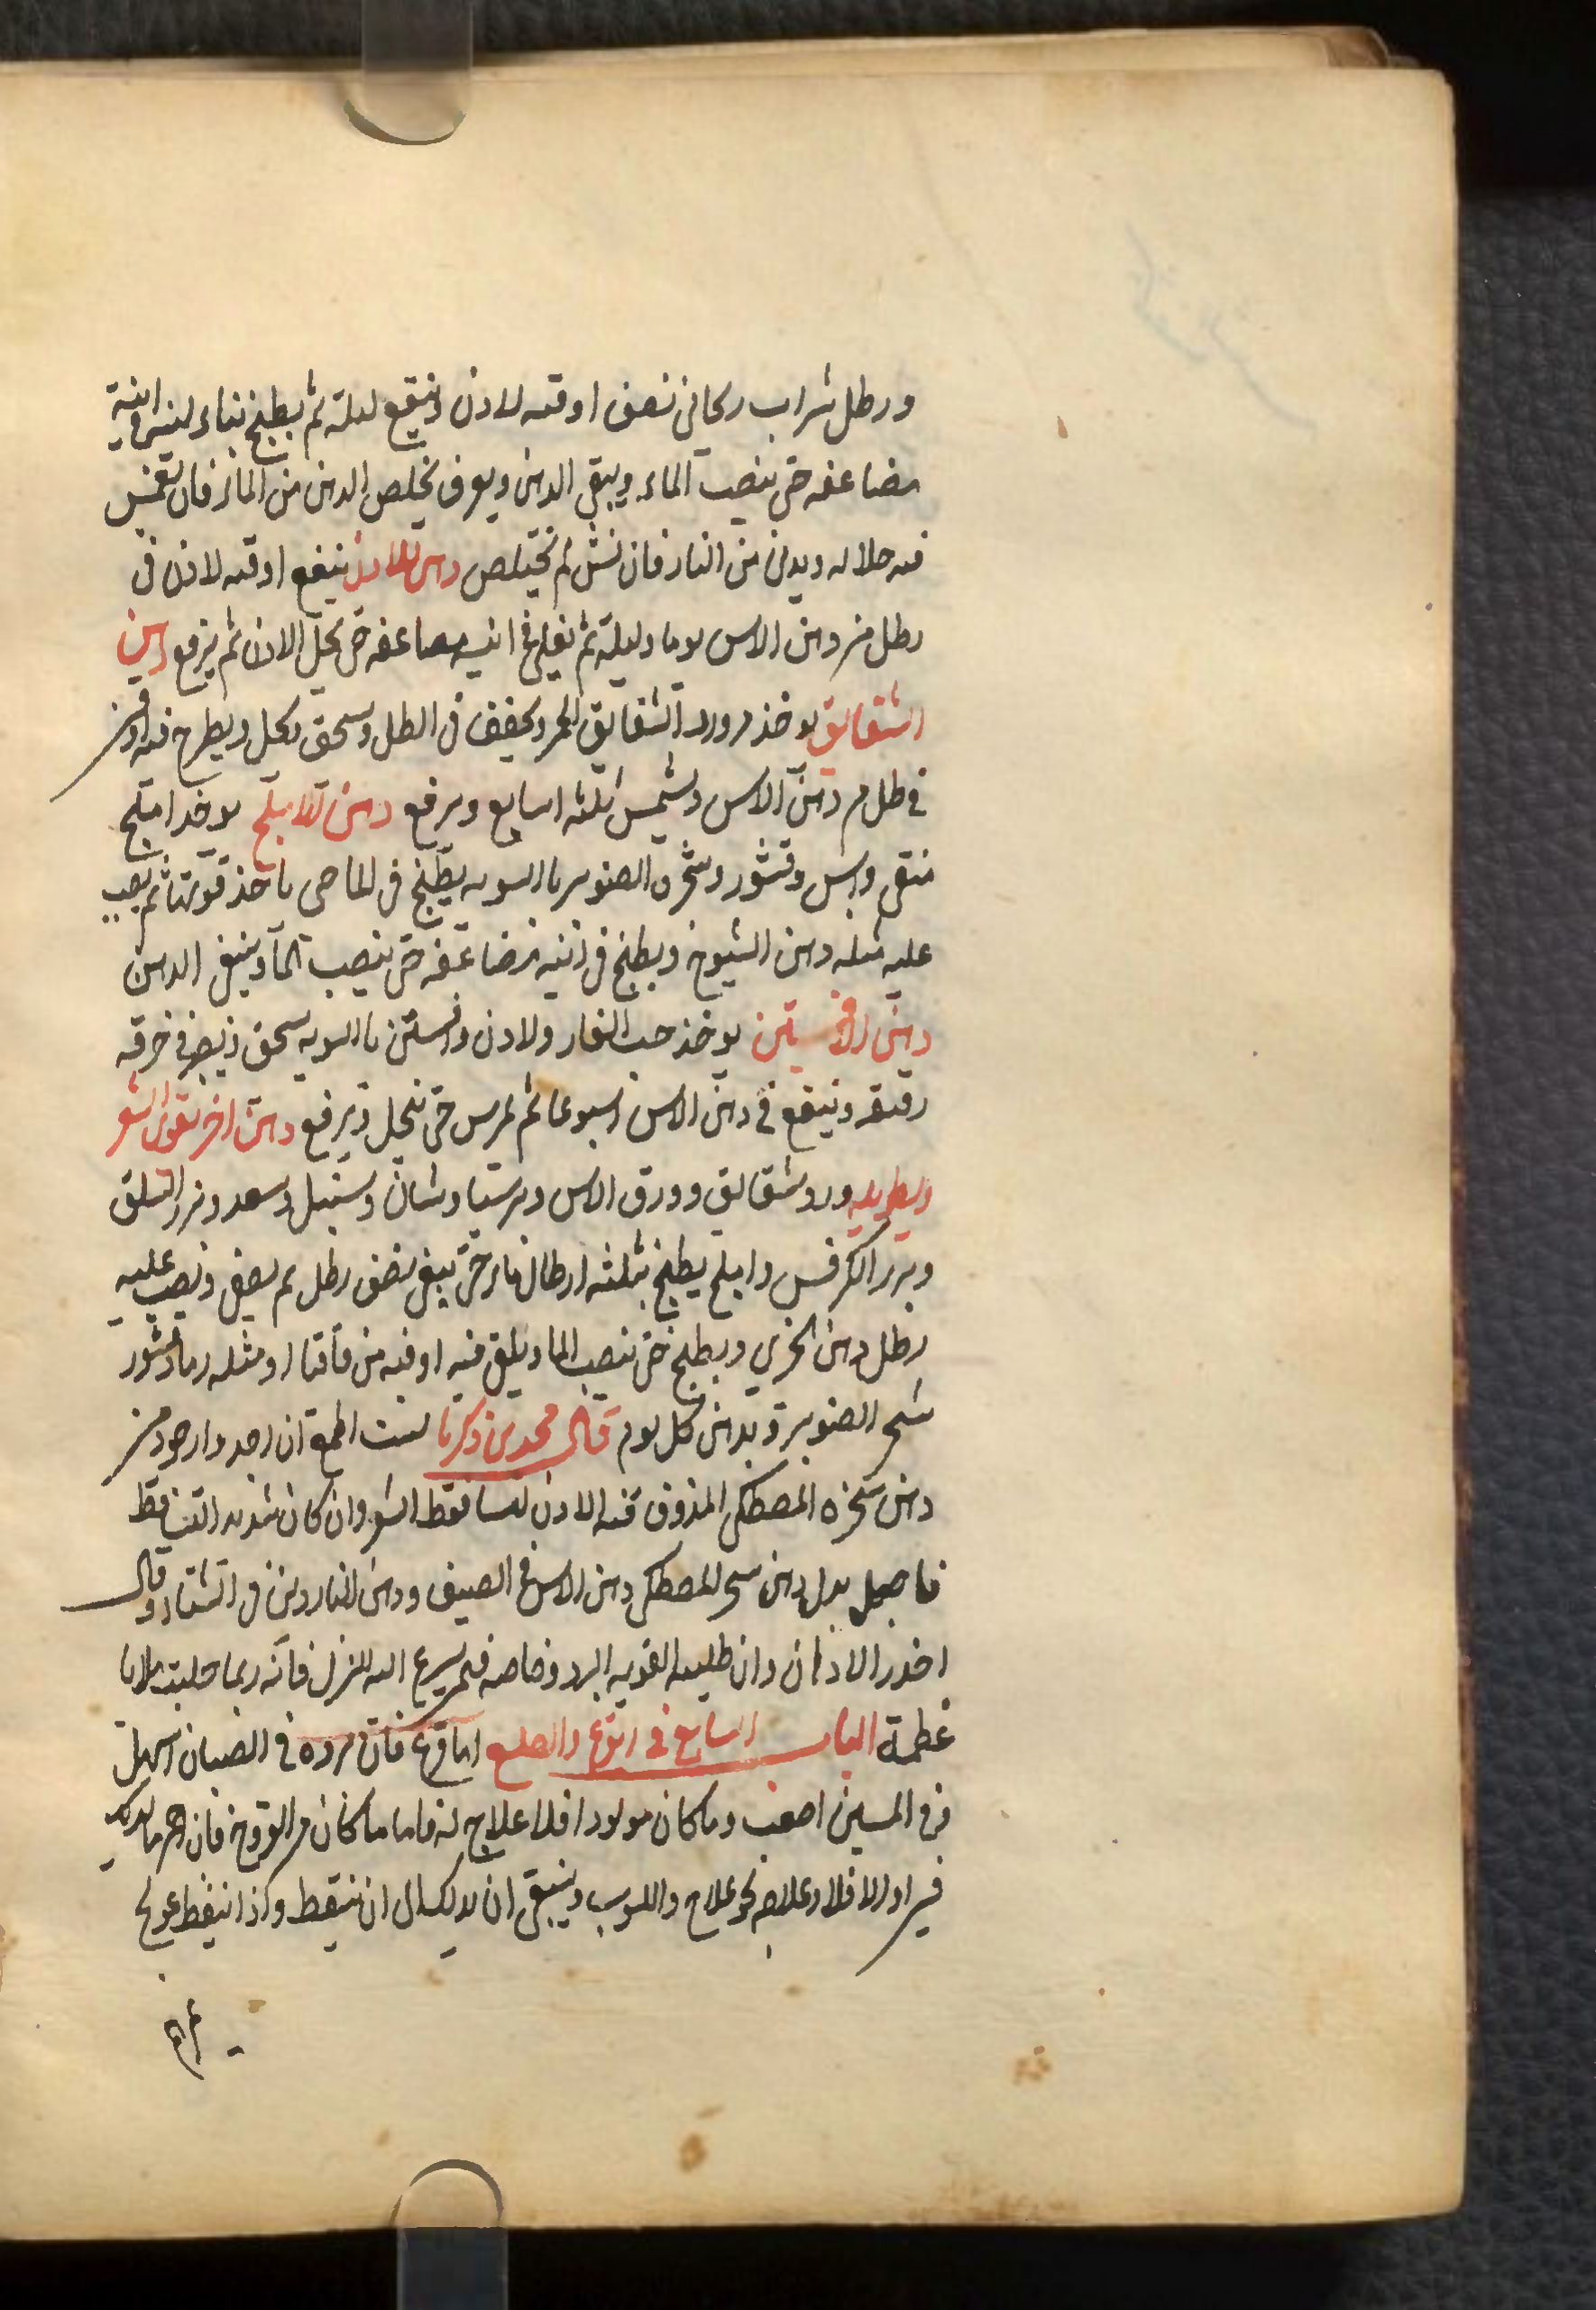 ورطل شراب ريحاني نصف اوقيه لادن وينقع ليلة ثم يطبخ بنار لينه في انية
مضاعفه حتى ينصب الماء ويبقى الدهن ويعرف تخلص الدهن من الماء فان تغمس
فيه خلاله ويدنى من النار فان نش لم يختلص دهن اللادن ينقع اوقيه لادن في
رطل من دهن الاس يوما وليلة ثم يغلى في انيه مضاعفه حتى ينحل الادن ثم يرفع دهن
الشقايق يوخذ من ورد الشقايق الحمر ويجفف في الظل ويسحق كحل ويطرح فيه
في طل من دهن الاس ويشمس ثلثه اسابيع ويرفع دهن الاملج يوخد املج
منقى واس وقشور وشجره الصنوبر بالسويه يطبخ في الما حتى ياخذ قوتها ثم يصب
عليه مثله دهن الشيرج ويطبخ في انيه مضاعفه حتى ينصب الماء ويبقى الدهن
دهن الافسنتين يوخذ حب الغار ولادن وافسنتين بالسويه يسحق ويصر في خرقه
رقيقه وينقع في دهن الاس اسبوعا ثم يمرس حتى ينحل ويرفع دهن اخر يقوى الشعر
ويطوله ورد شقايق وورق الاس وبرسياوشان وسنبل وسعد وبزر السلق
وبزر الكرفس واملج يطبخ بثلثه ارطال ماء حتى يبقى نصف رطل ثم يصفى ويصب عليه
رطل دهن الخيري ويطبخ حتى ينصب الما ويلقى فيه اوقيه من قاقيا ومثله رماد قشور
شجر الصنوبر ويدهن كل يوم قال محمد بن زكريا لست اطمع ان اجد وارجو من
دهن شجره المصطكى المذوف فيه الادن لتساقط الشعر وان كان شديد التساقط
فاجعل بدل دهن شجر المصطكى دهن الاس في الصيف ودهن الناردين في الشتاء وقال
احذر الادهان وان طليه القويه البرد وخاصه فيمن يسرع اليه النزل فانه ربما جلبت بلايا
عظيمة الباب السابع في القرع والصلع اما قرع فان برده في الصبيان اسهل
وفي المسين اصعب وما كان مولودا فلا علاج له فاما ما كان من القروح فان احمر بالدلك
فيبراو والا فلا وعلاجه نحو علاج دا الثعلب وينبغى ان يدلك الى ان ينقط واذا انيقط عولج